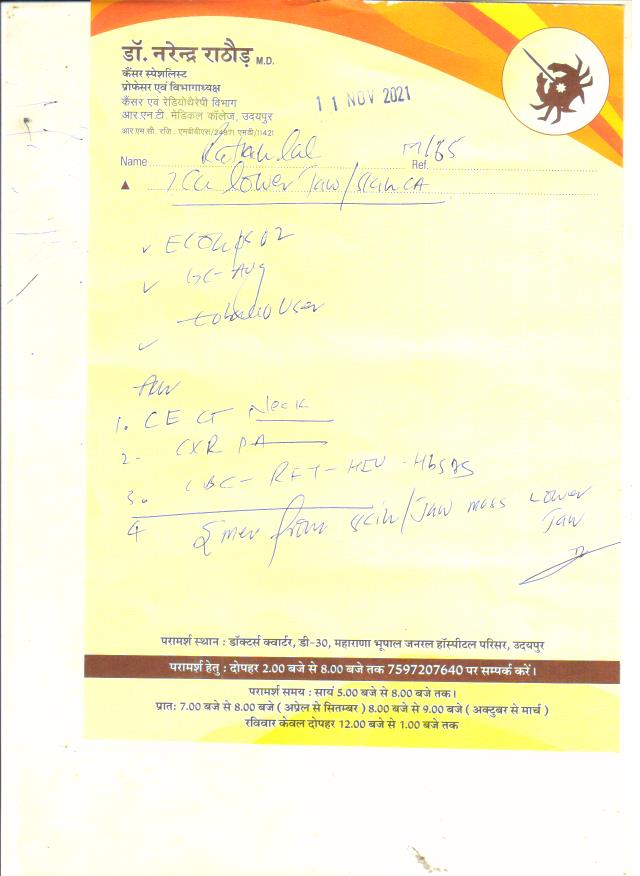 डॉ. नरेन्द्र राठौड़ M.D.
कैंसर स्पेशलिस्ट
प्रोफेसर एवं विभागाध्यक्ष
कैंसर एवं रेडियोथैरेपी विभाग
आर.एन.टी. मेडिकल कॉलेज, उदयपुर
आर.एम.सी. रजि. एमबीबीएस/24971 एमडी/11421
11 NOV 2021
Name Ratan lal M/85
Ref.
lower Jaw/skin CA
ECOG PS 02
GC- Avg
tobacco User
Adv
1. CECT Neck
2- CXR PA
3. CBC- RFT- HIV- HbsAg
4 from skin/Jaw mass Lower
Jaw
परामर्श स्थान : डॉक्टर्स क्वार्टर, डी-30, महाराणा भूपाल जनरल हॉस्पीटल परिसर, उदयपुर
परामर्श हेतु : दोपहर 2.00 बजे से 8.00 बजे तक 7597207640 पर सम्पर्क करें।
परामर्श समय : सायं 5.00 बजे से 8.00 बजे तक।
प्रातः 7.00 बजे से 8.00 बजे ( अप्रेल से सितम्बर ) 8.00 बजे से 9.00 बजे ( अक्टुबर से मार्च )
रविवार केवल दोपहर 12.00 बजे से 1.00 बजे तक